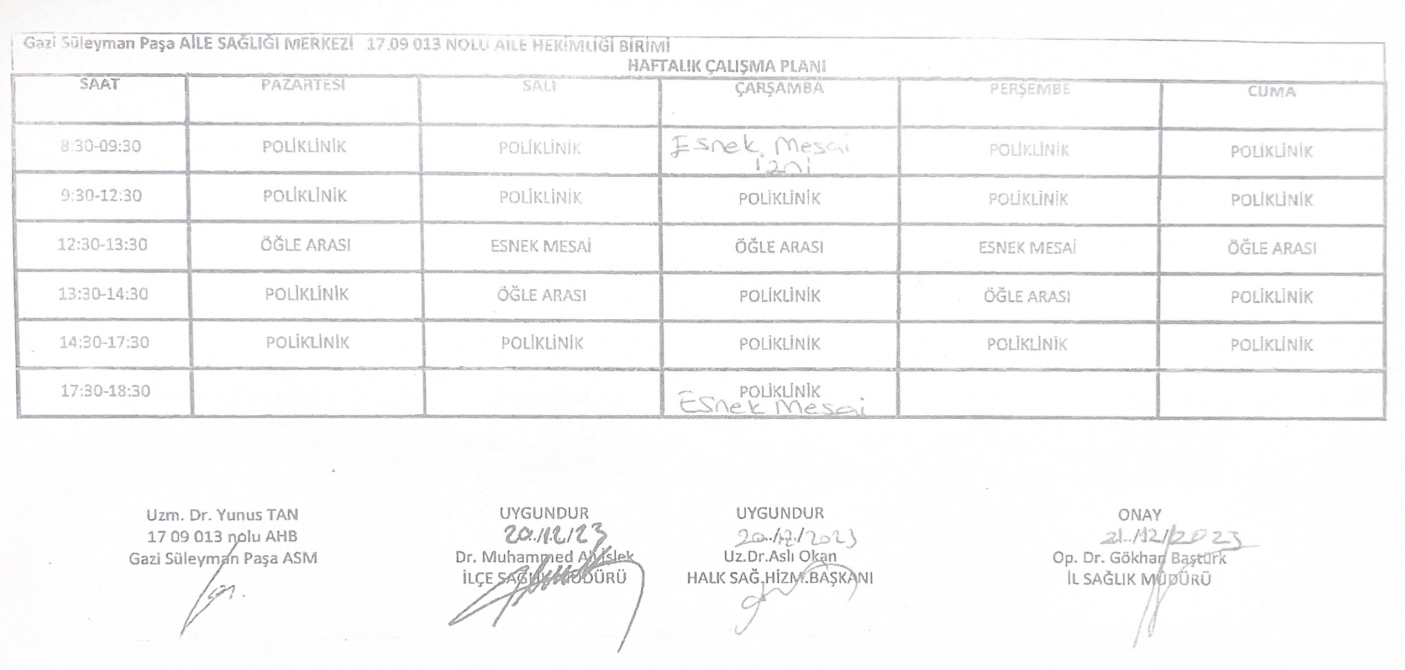 Gazi Süleyman Paşa AİLE SAĞLIĞI MERKEZİ 17.09 013 NOLU AİLE HEKİMLİĞİ BİRİMİ
HAFTALIK ÇALIŞMA PLANI
SAAT PAZARTESİ SALI ÇARŞAMBA PERŞEMBE CUMA
8:30-09:30 POLİKLİNİK POLİKLİNİK Esnek Mesai POLİKLİNİK POLİKLİNİK
izni
9:30-12:30 POLİKLİNİK POLİKLİNİK POLİKLİNİK POLİKLİNİK POLİKLİNİK
12:30-13:30 ÖĞLE ARASI ESNEK MESAİ ÖĞLE ARASI ESNEK MESAİ ÖĞLE ARASI
13:30-14:30 POLİKLİNİK ÖĞLE ARASI POLİKLİNİK ÖĞLE ARASI POLİKLİNİK
14:30-17:30 POLİKLİNİK POLİKLİNİK POLİKLİNİK POLİKLİNİK POLİKLİNİK
17:30-18:30 POLİKLİNİK
Esnek Mesai
Uzm. Dr. Yunus TAN
17 09 013 nolu AHB
Gazi Süleyman Paşa ASM
UYGUNDUR
20/12/23
Dr. Muhammed
İLÇE SAĞLIK MÜDÜRÜ
UYGUNDUR
20/12/2023
Uz.Dr.Aslı Okan
HALK SAĞ.HİZM.BAŞKANI
ONAY
21/12/2023
Op. Dr. Gökhan Baştürk
İL SAĞLIK MÜDÜRÜ